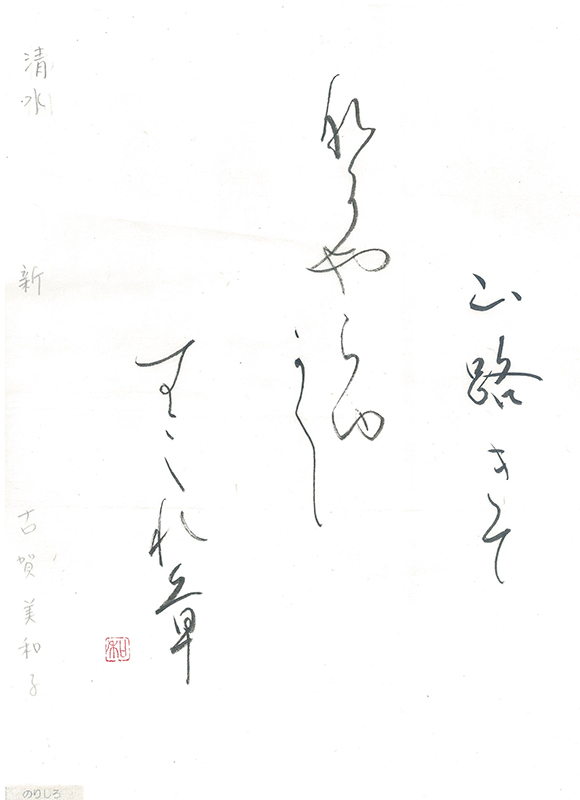 山路きて
那にやらゆ
かし
すみれ草
清水
新
古賀美和子
和
のりしろ